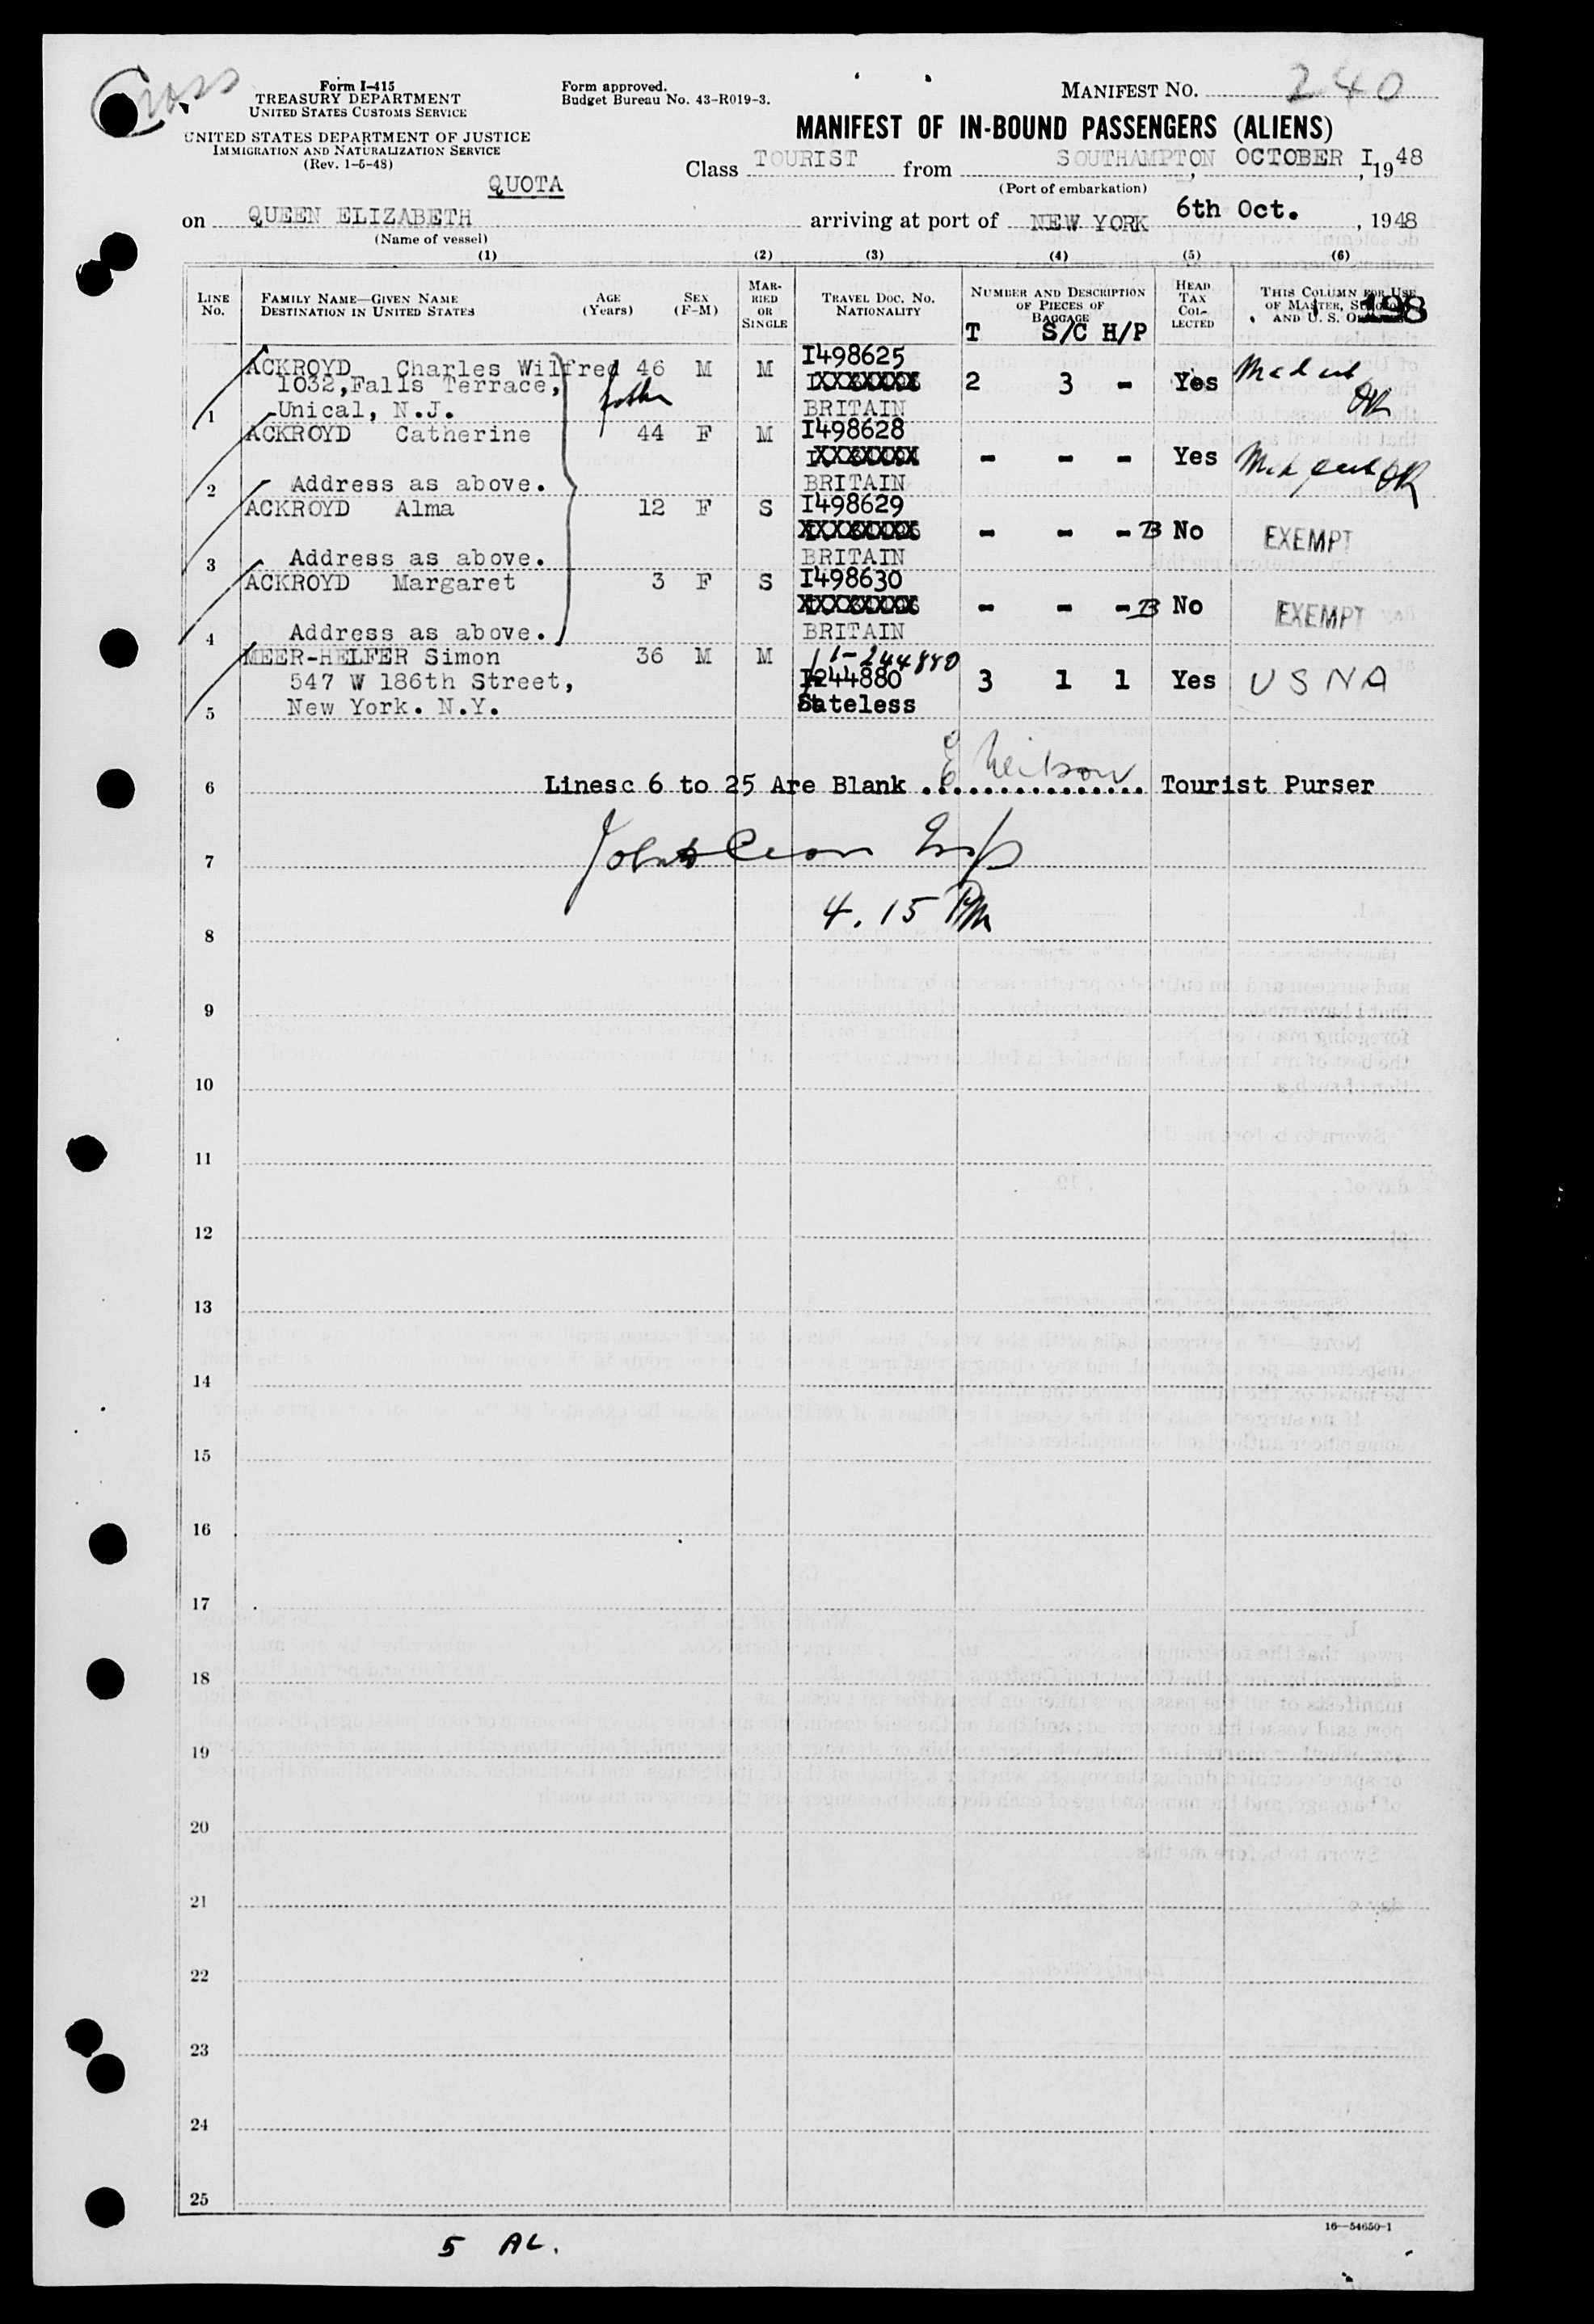 Form I-415
TREASURY DEPARTMENT
UNITED STATES CUSTOMS SERVICE
UNITED STATES DEPARTMENT OF JUSTICE
IMMIGRATION AND NATURALIZATION SERVICE
(Rev. 1-5-48)
Form approved.
Budget Bureau No. 43-R019-3.
MANIFEST NO. 240
MANIFEST OF IN-BOUND PASSENGERS (ALIENS)
Class TOURIST from SOUTHAMPTON, OCTOBER I, 1948
(Port of embarkation)
QUOTA
on QUEEN ELIZABETH arriving at port of NEW YORK 6th Oct., 1948
(Name of vessel)
(1) (2) (3) (4) (5) (6)
LINE No. FAMILY NAME—GIVEN NAME DESTINATION IN UNITED STATES AGE (Years) SEX (F-M) MARRIED OR SINGLE TRAVEL DOC. NO. NATIONALITY NUMBER AND DESCRIPTION OF PIECES OF BAGGAGE HEAD TAX COLLECTED THIS COLUMN FOR USE OF MASTER, AND U. S.
T S/C H/P
198
ACKROYD Charles Wilfred 46 M M I498625
1032, Falls Terrace, 2 3 - Yes
1 Unical, N.J. BRITAIN OR
ACKROYD Catherine 44 F M I498628
- - - Yes OR
2 Address as above. BRITAIN
ACKROYD Alma 12 F S I498629
- - - B No EXEMPT
3 Address as above. BRITAIN
ACKROYD Margaret 3 F S I498630
- - - B No EXEMPT
4 Address as above. BRITAIN
MEER-HELFER Simon 36 M M 11-244880
547 W 186th Street, I244880 3 1 1 Yes USNA
5 New York. N.Y. Stateless
6 Linesc 6 to 25 Are Blank ................ Tourist Purser
7
4.15 PM
8
9
10
11
12
13
14
15
16
17
18
19
20
21
22
23
24
25
16—54650-1
5 AL.